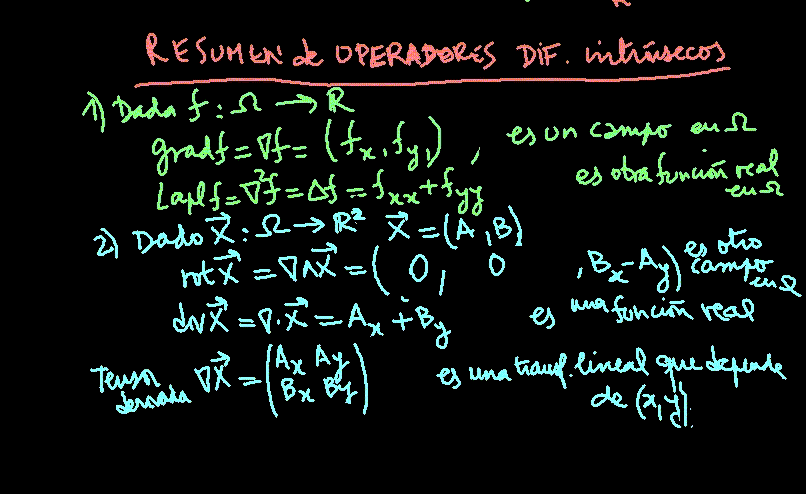 RESUMEN de OPERADORES DIF. intrínsecos
1) Dada f : Ω → R
grad f = ∇f = (fx, fy,) , es un campo en Ω
Lapl f = ∇²f = Δf = fxx + fyy es otra función real en Ω
2) Dado X⃗ : Ω → R² X⃗ = (A, B)
rot X⃗ = ∇∧X⃗ = ( 0, 0 , Bx - Ay) es otro campo en Ω
div X⃗ = ∇·X⃗ = Ax + By es una función real
Tensor derivada ∇X⃗ = (Ax Ay es una transf. lineal que depende
Bx By) de (x,y)